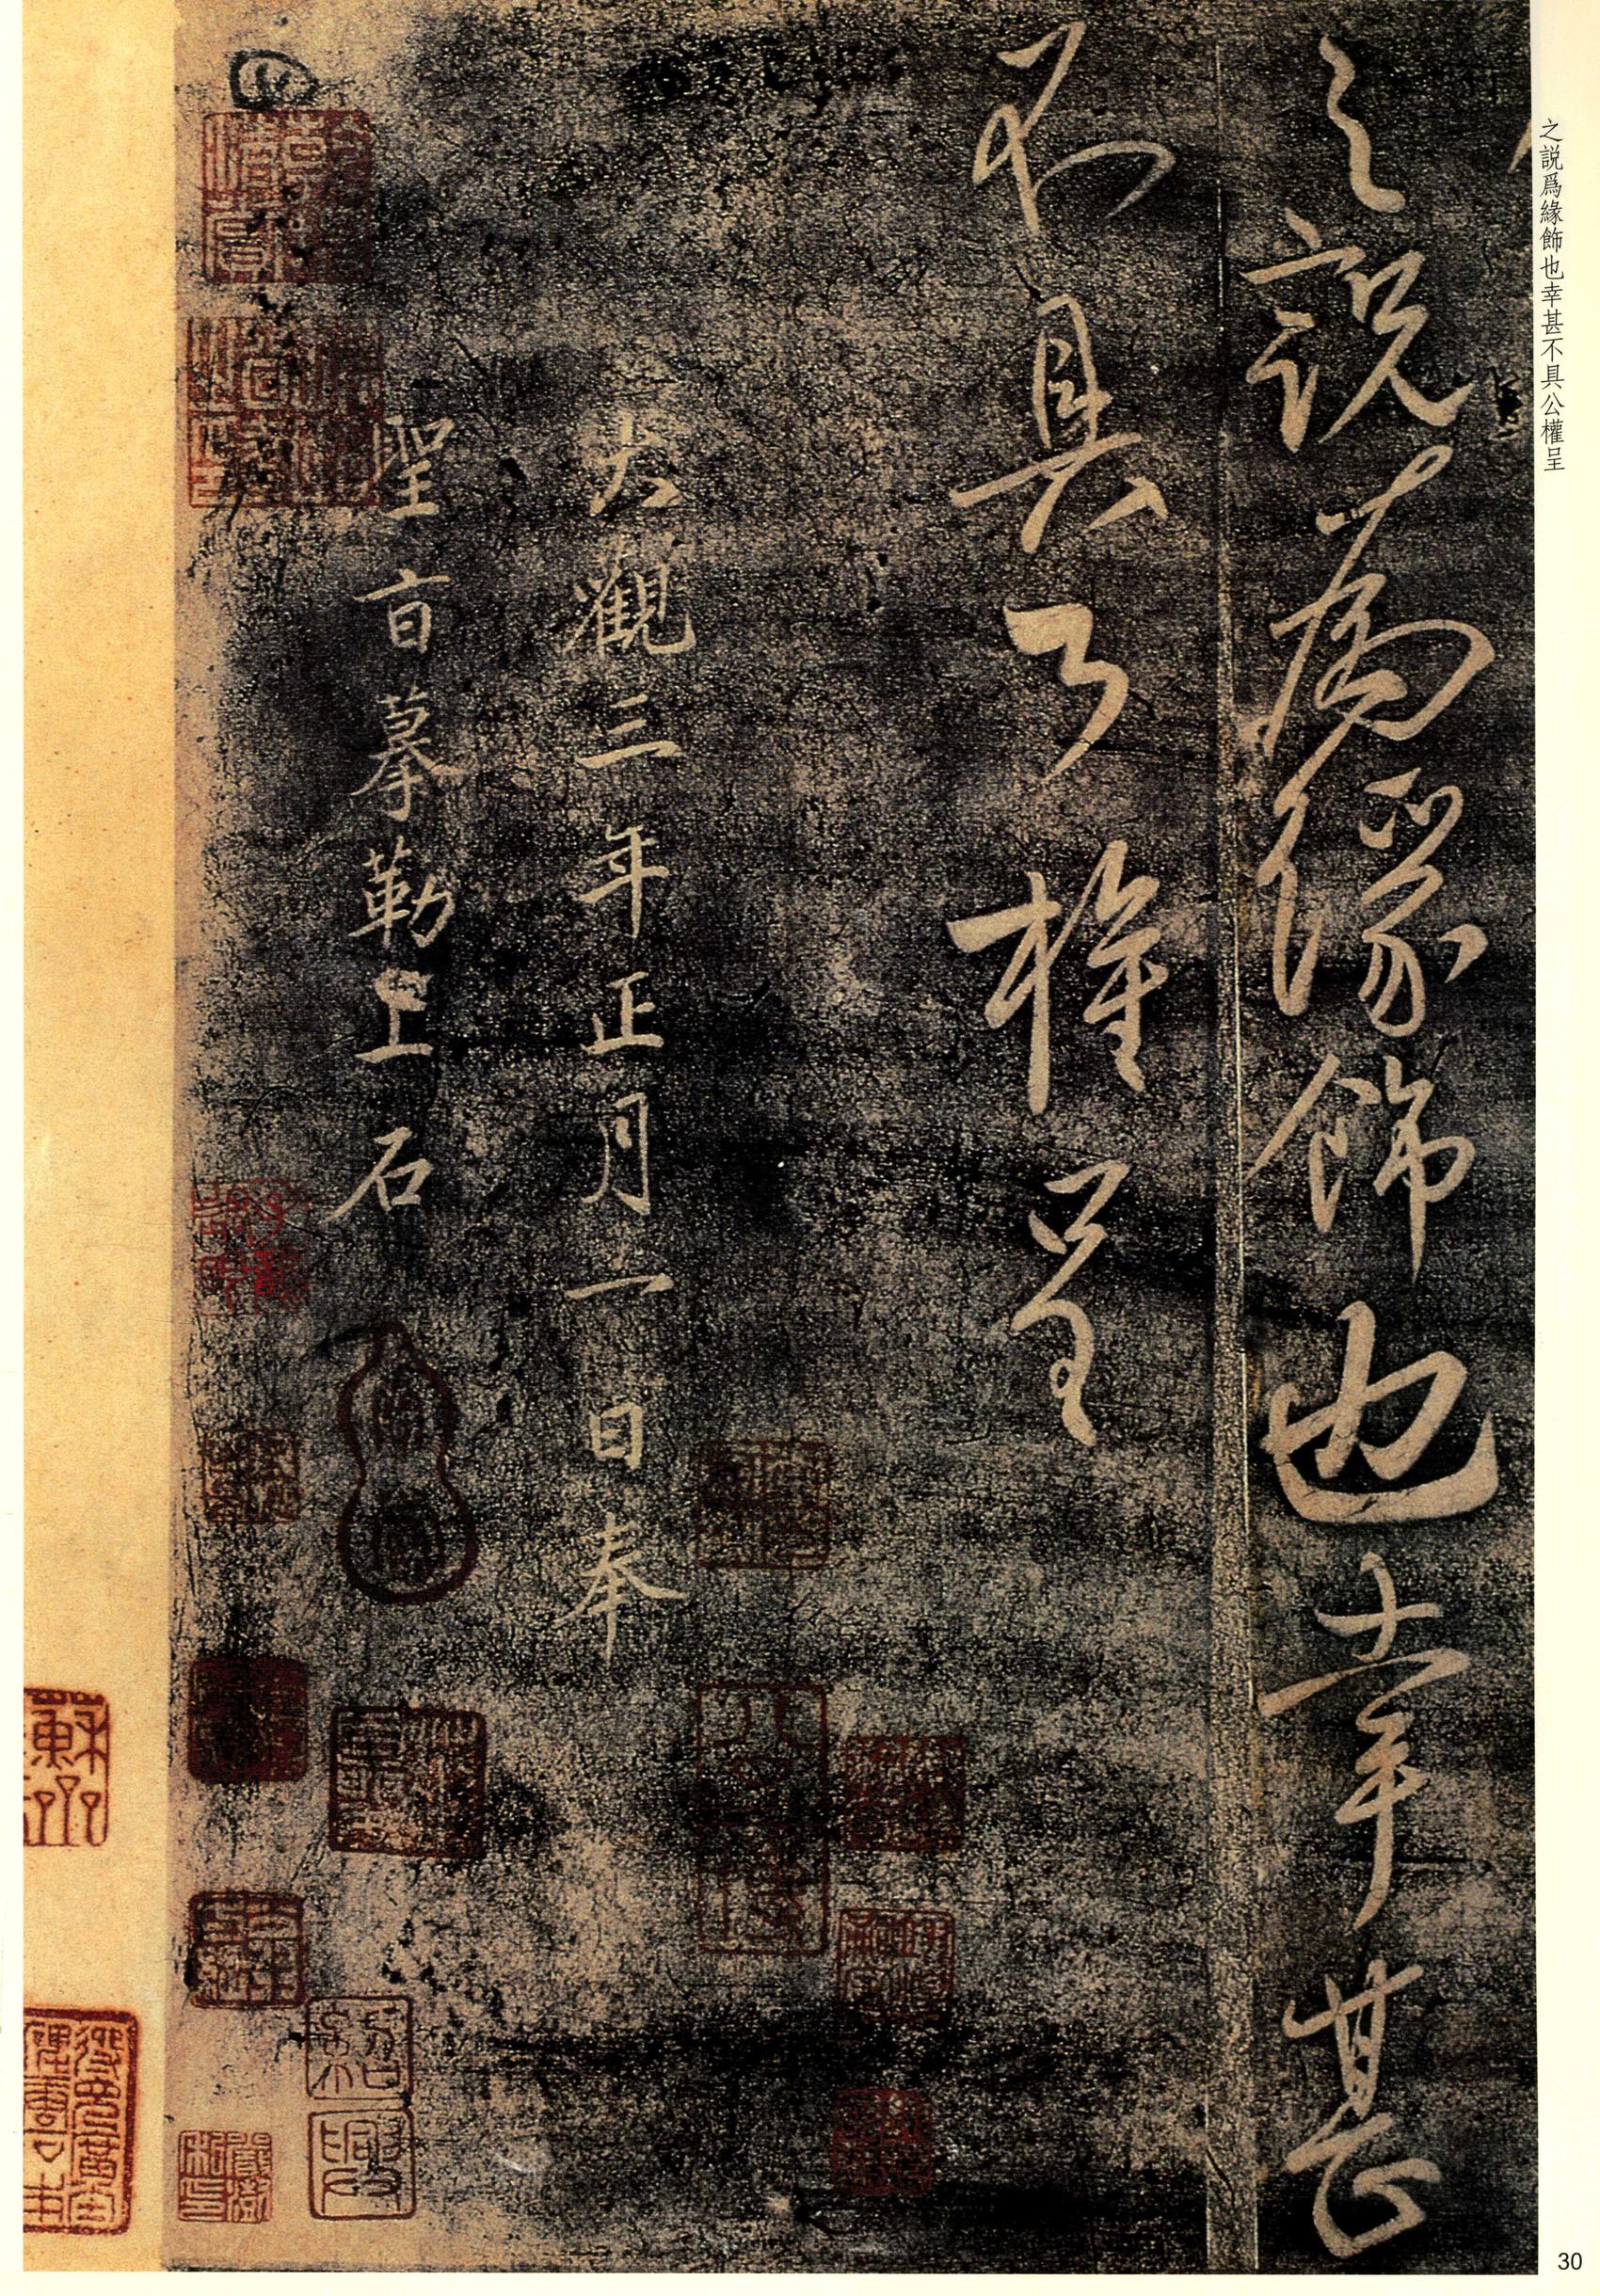 之說爲緣飾也幸甚不具公權呈
之說爲緣飾也幸甚
不具公權呈
大觀三年正月一日奉
聖旨摹勒上石
30